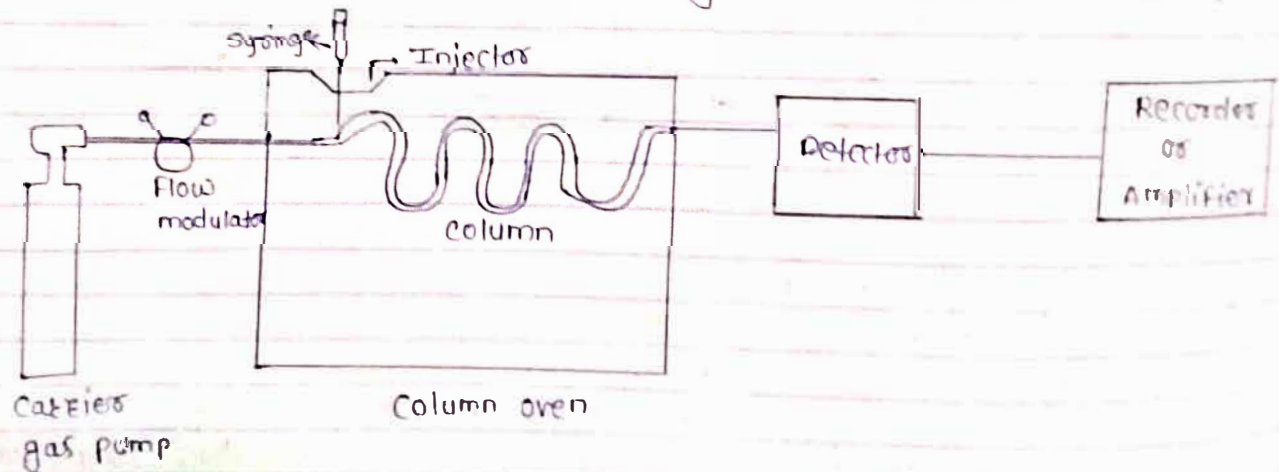 Syringe
Injector
Flow
modulator
Column
Detector
Recorder
or
Amplifier
Carrier
gas pump
Column oven